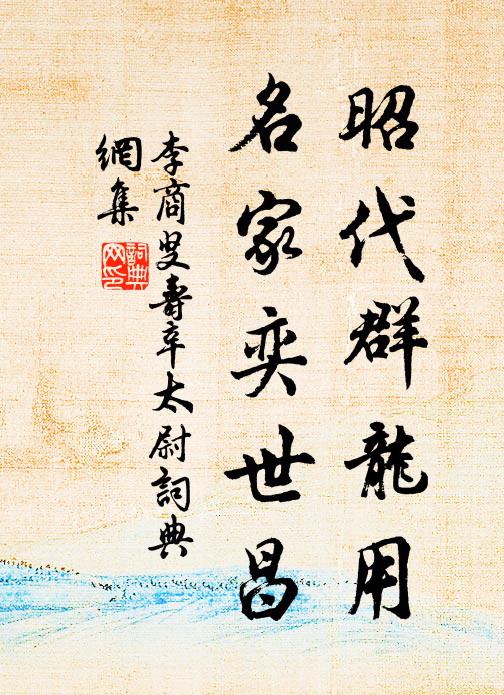 昭代群龍用
名家奕世昌
李商叟壽辛太尉詞典
網集
詞典
网印